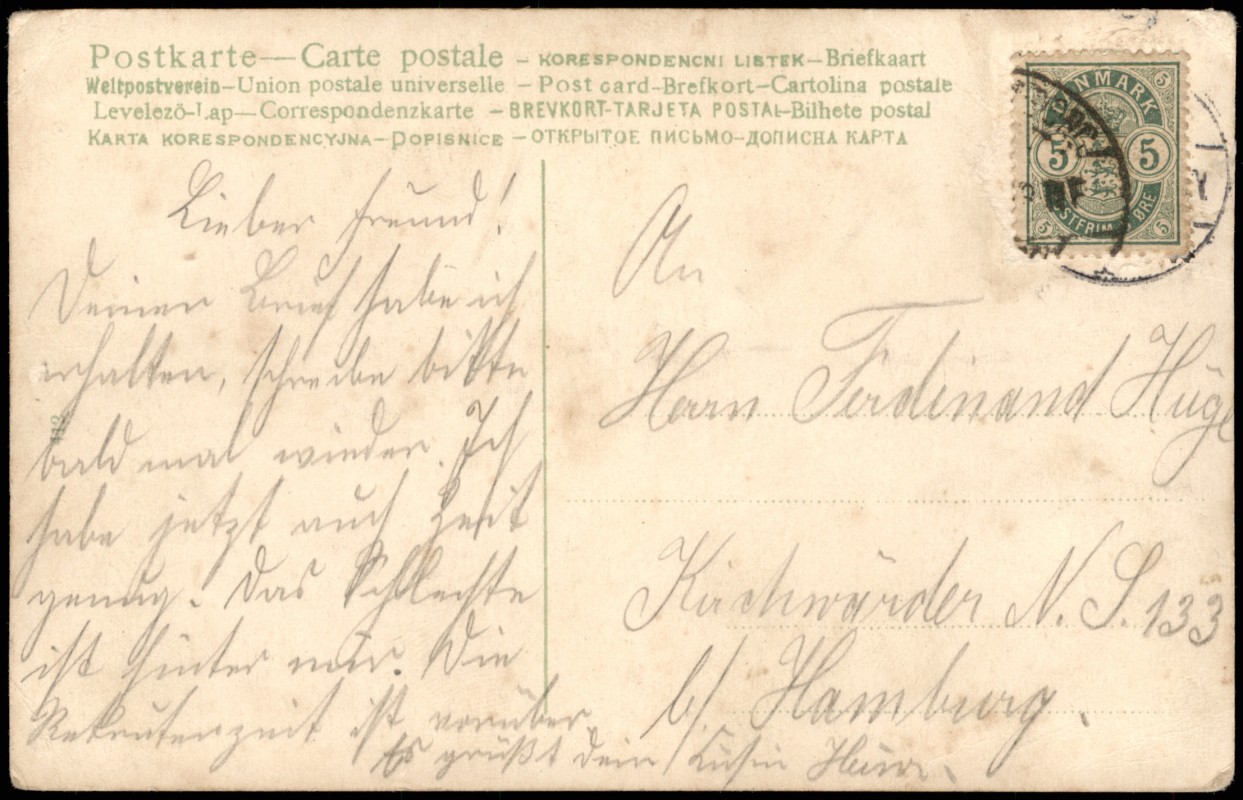 Postkarte — Carte postale – KORESPONDENCNI LISTEK – Briefkaart
Weltpostverein – Union postale universelle – Post card – Brefkort – Cartolina postale
Levelezö-Lap — Correspondenzkarte – BREVKORT – TARJETA POSTAL – Bilhete postal
KARTA KORESPONDENCYJNA – DOPISNICE – ОТКРЫТОЕ ПИСЬМО – ДОПИСНА КАРТА
DANMARK
5 5
POSTFRIM ØRE
Lieber Freund!
Deinen Brief habe ich
erhalten, schreibe bitte
bald mal wieder. Ich
habe jetzt auch Zeit
genug. Das Schlechte
ist hinter mir. Die
Rekrutenzeit ist vorüber
Es grüßt dein Kusin
412
An
Herrn Ferdinand
Kirchwärder N. S. 133
b/ Hamburg.